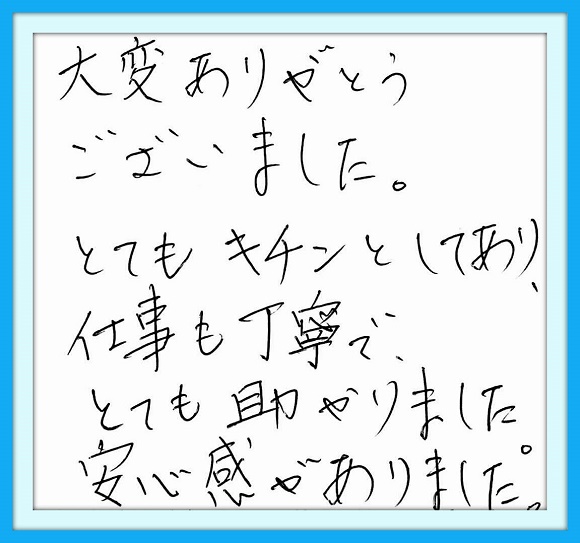 大変ありがとう
ございました。
とてもキチンとしてあり、
仕事も丁寧で、
とても助かりました。
安心感がありました。